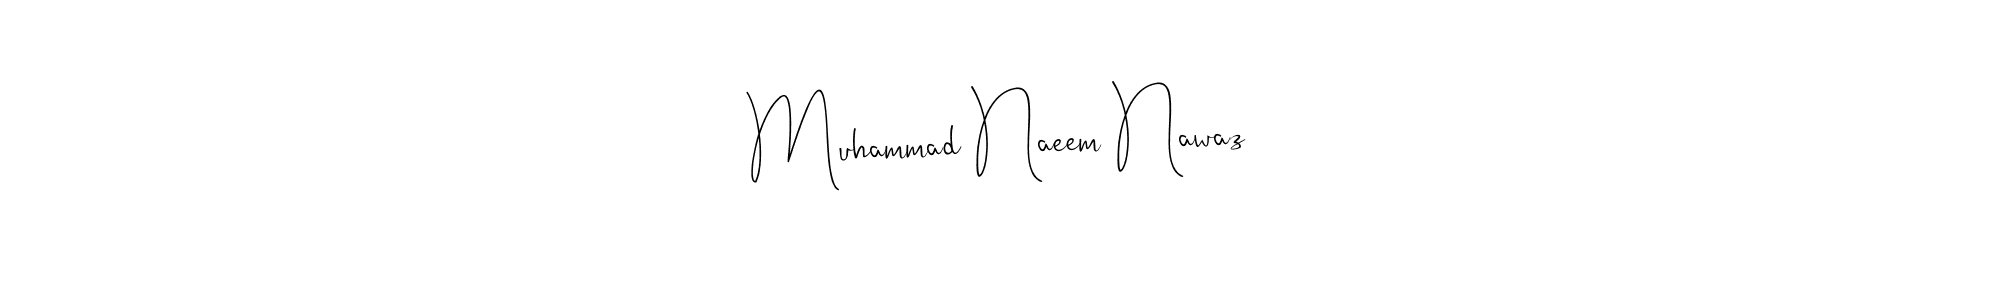 Muhammad Naeem Nawaz